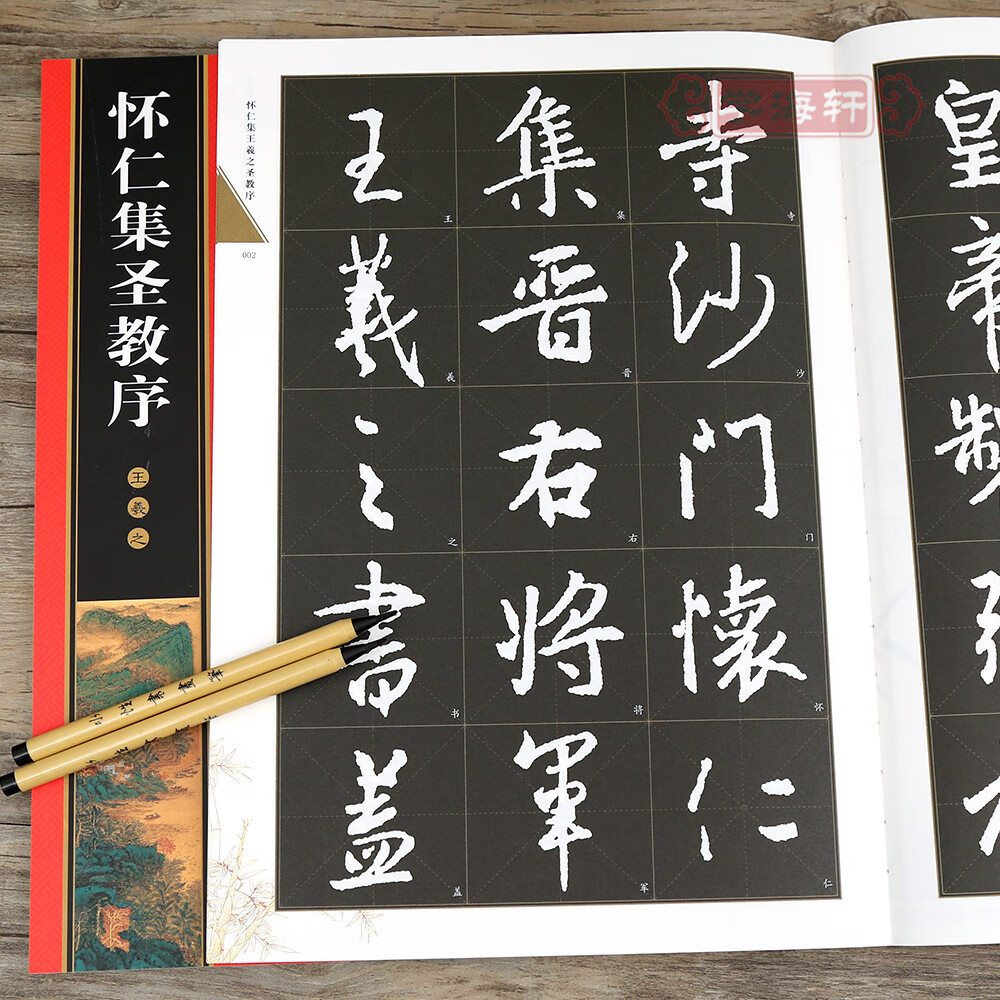 怀仁集圣教序
王羲之
怀仁集王羲之圣教序
002
寺沙门懷仁
集晋右将軍
王羲之書蓋
寺
沙
门
怀
仁
集
晋
右
将
军
王
羲
之
书
盖
皇帝製
学海轩